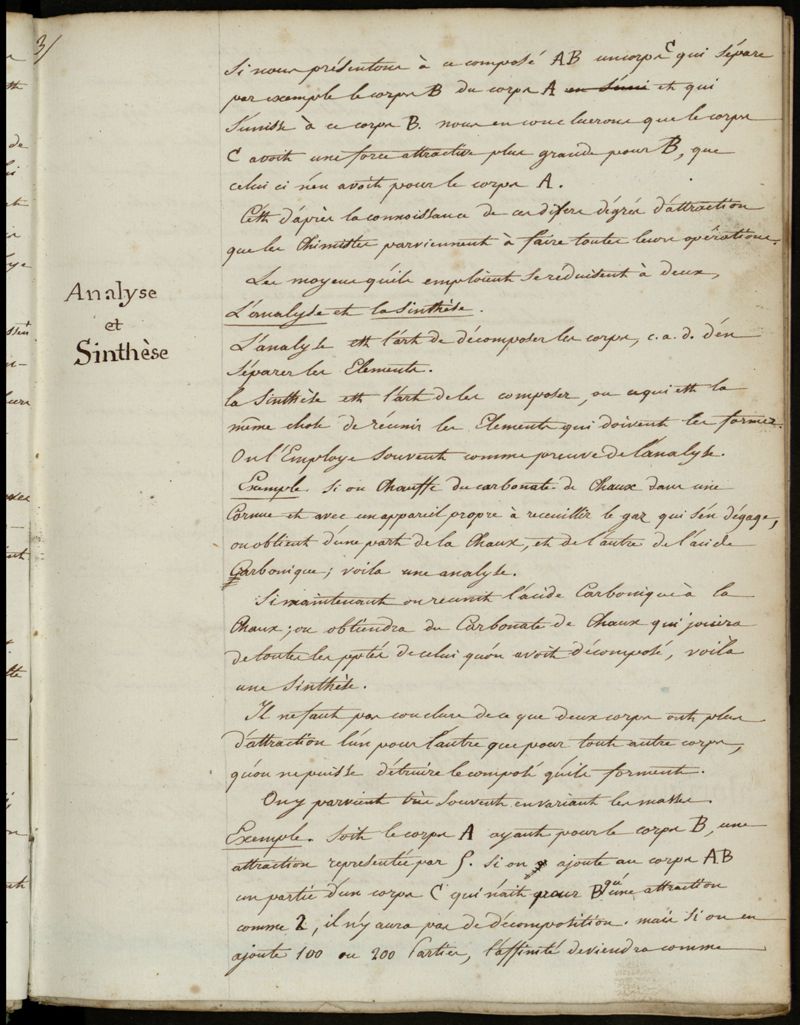 3/
Si nous présentons à ce composé AB un corps C qui sépare
par exemple le corps B du corps A et qui
s'unisse à ce corps B. nous en concluerons que le corps
C avoit une force attractive plus grande pour B, que
celui ci n'en avoit pour le corps A.
C'est d'après la connoissance de ces difers dégrés d'attraction
que les Chimistes parviennent à faire toutes leurs opérations.
Les moyens qu'ils emploient se réduisent à deux,
L'analyse et la Sinthèse.
Analyse
et
Sinthèse
L'analyse est l'art de décomposer les corps, c. a. d. d'en
séparer les Elements.
la Sinthèse est l'art de les composer, ou ce qui est la
même chose de réunir les Elements qui doivent les former.
On l'Employe souvent comme preuve de l'analyse.
Exemple. Si on Chauffe du carbonate de Chaux dans une
Cornue et avec un appareil propre à receuillir le gaz qui s'én dégage,
on obtient d'une part de la Chaux, et de l'autre de l'acide
Carbonique; voila une analyse.
Si maintenant on reunit l'acide Carbonique à la
Chaux; on obtiendra du Carbonate de Chaux qui joisira
de toutes les pptés de celui qu'on avoit décomposé, voila
une Sinthèse.
Il ne faut pas conclure de ce que deux corps ont plus
d'attraction l'un pour l'autre que pour tout autre corps,
qu'on ne puisse détruire le composé qu'ils forment.
On y parvient très souvent en variant les masses.
Exemple. Soit le corps A ayant pour le corps B, une
attraction representée par 5. Si on ajoute au corps AB
un partie d'un corps C qui n'ait pour B qu'une attraction
comme 2, il n'y aura pas de décomposition. mais si on en
ajoute 100 ou 200 Parties, l'affinité deviendra comme